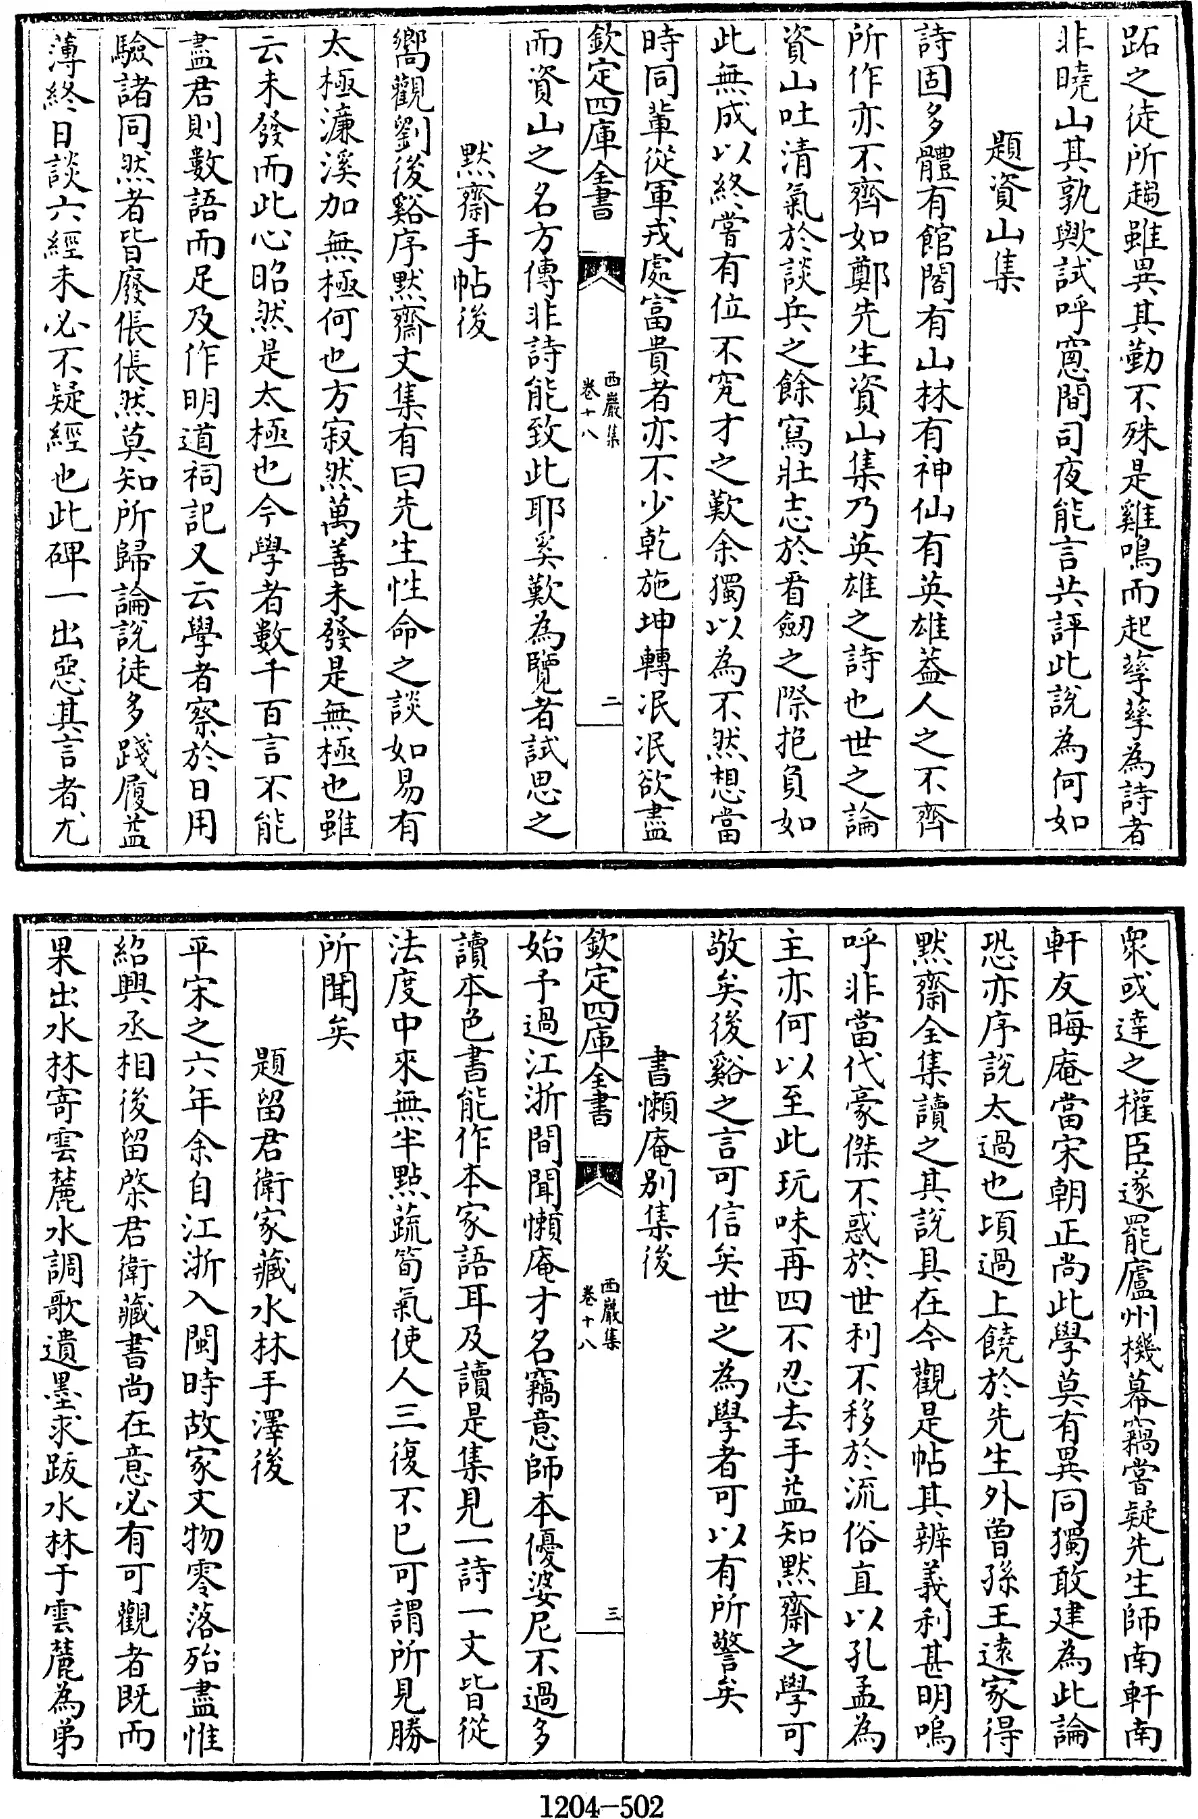 跖之徒所趨雖異其勤不殊是雞鳴而起孳孳為詩者
非曉山其孰歟試呼窻間司夜能言共評此說為何如
題資山集
詩固多體有館閣有山林有神仙有英雄葢人之不齊
所作亦不齊如鄭先生資山集乃英雄之詩也世之論
資山吐清氣於談兵之餘寫壯志於看劒之際抱負如
此無成以終嘗有位不究才之歎余獨以為不然想當
時同軰從軍戎處富貴者亦不少乾施坤轉泯泯欲盡
欽定四庫全書
西巖集
卷十八
二
而資山之名方傳非詩能致此耶奚歎為覽者試思之
默齋手帖後
嚮觀劉後谿序默齋文集有曰先生性命之談如易有
太極濂溪加無極何也方寂然萬善未發是無極也雖
云未發而此心昭然是太極也今學者數千百言不能
盡君則數語而足及作明道祠記又云學者察於日用
驗諸同然者皆廢倀倀然莫知所歸論說徒多踐履益
薄終日談六經未必不疑經也此碑一出惡其言者尤
衆或達之權臣遂罷廬州機幕竊嘗疑先生師南軒南
軒友晦庵當宋朝正尚此學莫有異同獨敢建為此論
恐亦序說太過也頃過上饒於先生外曽孫王遠家得
默齋全集讀之其說具在今觀是帖其辨義利甚明嗚
呼非當代豪傑不惑於世利不移於流俗直以孔孟為
主亦何以至此玩味再四不忍去手葢知默齋之學可
敬矣後谿之言可信矣世之為學者可以有所警矣
書懶庵別集後
欽定四庫全書
西巖集
卷十八
三
始予過江浙間聞懶庵才名竊意師本優婆尼不過多
讀本色書能作本家語耳及讀是集見一詩一文皆從
法度中來無半點蔬筍氣使人三復不已可謂所見勝
所聞矣
題留君衛家藏水林手澤後
平宋之六年余自江浙入閩時故家文物零落殆盡惟
紹興丞相後留棨君衛藏書尚在意必有可觀者既而
果出水林寄雲麓水調歌遺墨求跋水林于雲麓為弟
1204—502